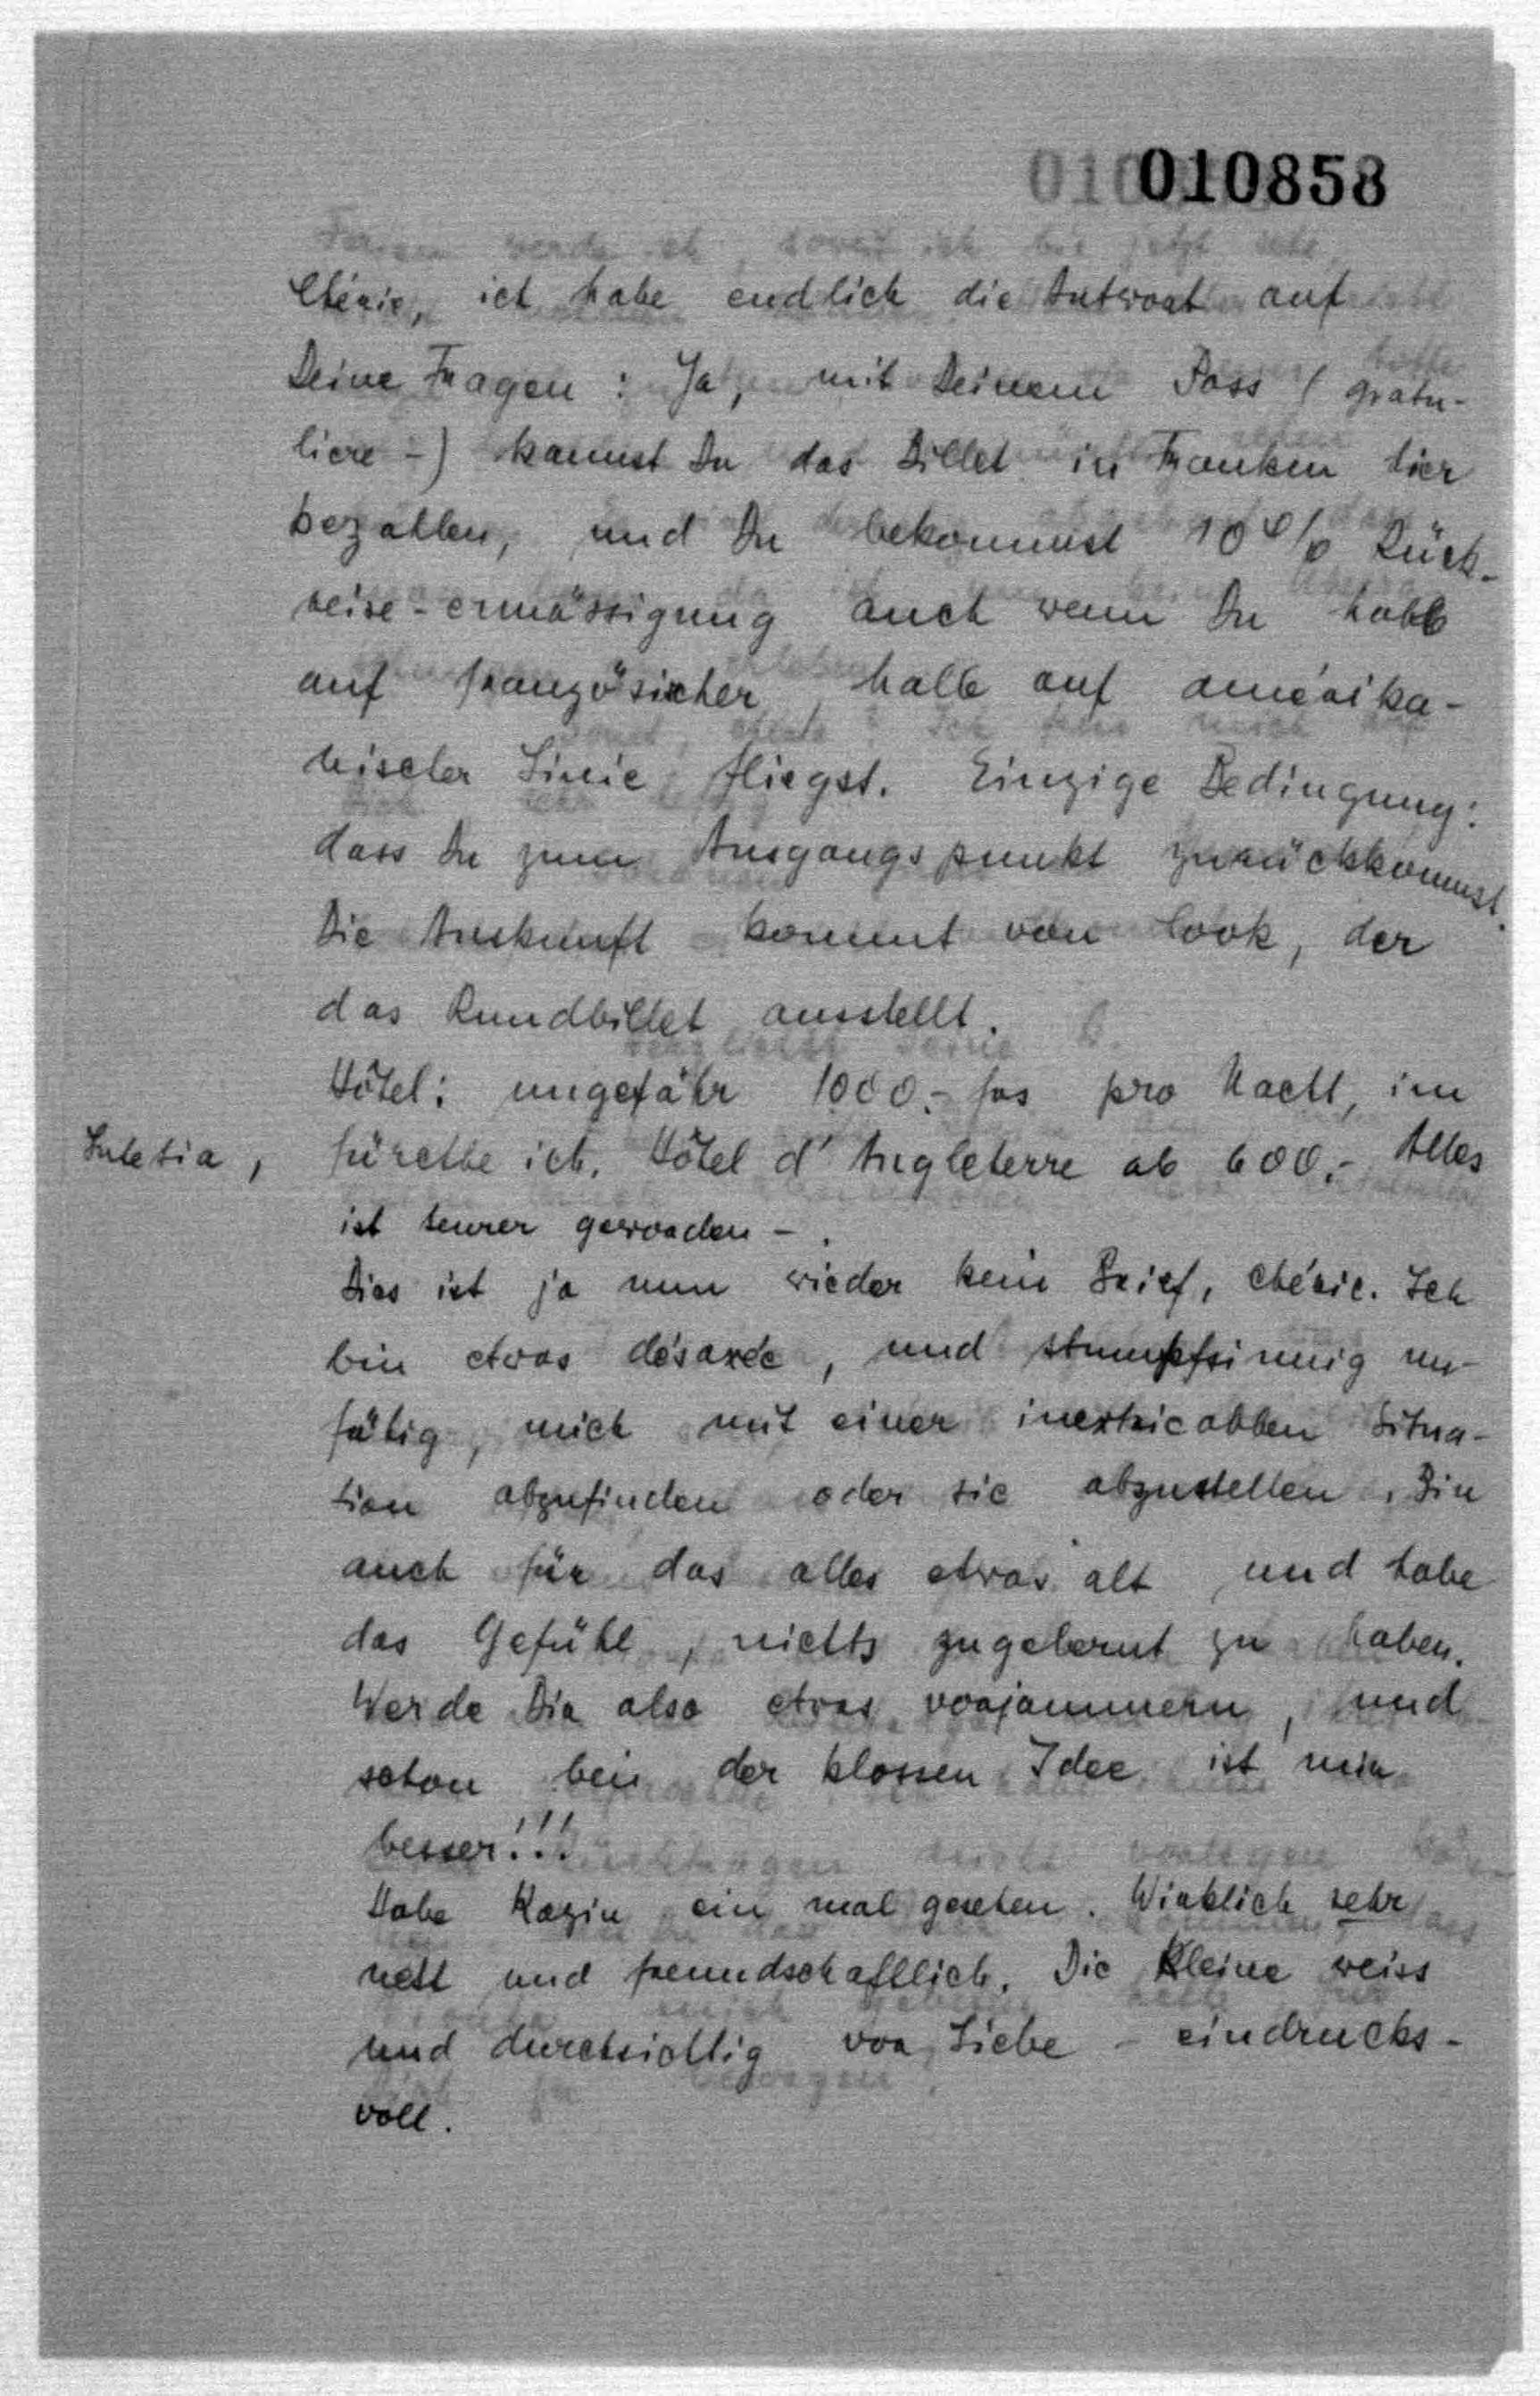 010858
Chérie, ich habe endlich die Antwort auf
Deine Fragen : Ja, mit Deinem Pass ( gratu-
liere -) kannst Du das Billet in Franken hier
bezahlen, und Du bekommst 10% Rück-
reise-ermässigung auch wenn Du halb
auf französischer halb auf amerika-
nischer Linie fliegst. Einzige Bedingung:
dass Du zum Ausgangspunkt zurückkommst.
Die Auskunft kommt von Cook, der
das Rundbillet ausstellt.
Hôtel: ungefähr 1000.- frs pro Nacht, im
Lutetia, fürchte ich. Hôtel d'Angleterre ab 600.- Alles
ist teurer geworden - .
Dies ist ja nun wieder kein Brief, chérie. Ich
bin etwas désaxée, und stumpfsinnig un-
fähig, mich mit einer inextricablen Situa-
tion abzufinden oder sie abzustellen. Bin
auch für das alles etwas alt und habe
das Gefühl, nichts zugelernt zu haben.
Werde Dir also etwas vorjammern, und
schon bei der blossen Idee ist mir
besser!!!
Habe Kazin ein mal gesehen. Wirklich sehr
nett und freundschaftlich. Die Kleine weiss
und durchsichtig vor Liebe - eindrucks-
voll.